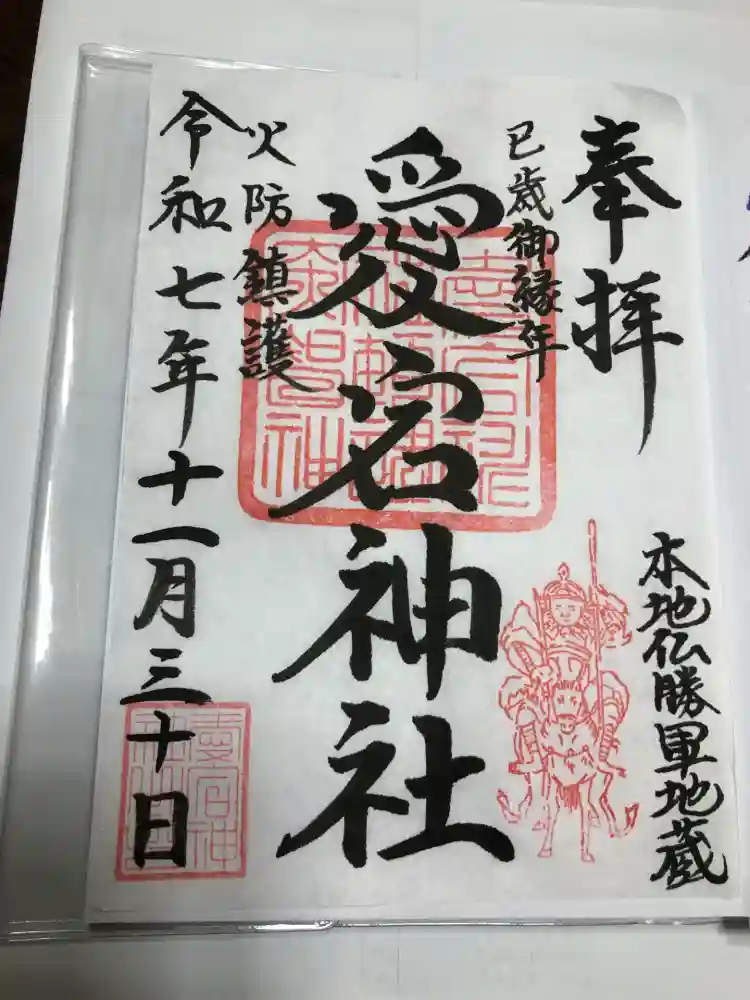 奉拝
巳歳御縁年
本地仏勝軍地蔵
愛宕神社
火防鎮護
令和七年十一月三十日